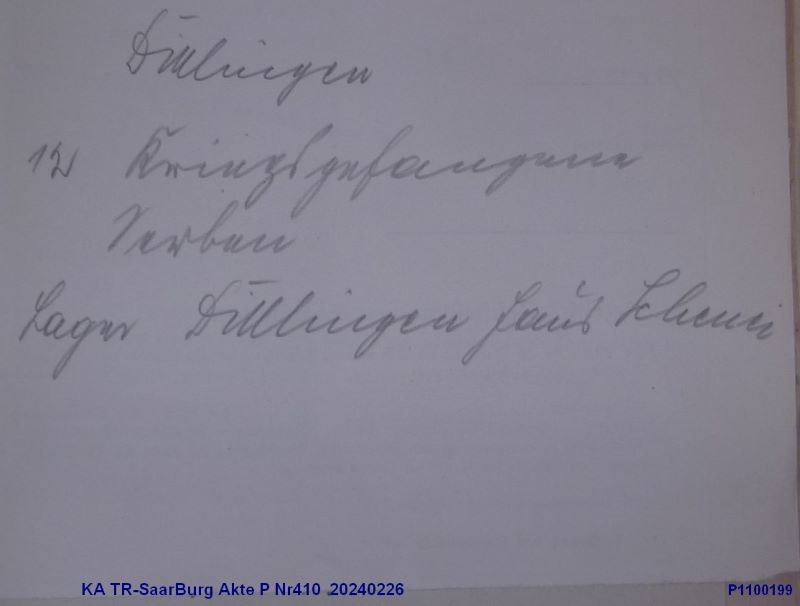 Dillingen
12 Kriegsgefangene
Serben
Lager Dillingen Haus
KA TR-SaarBurg Akte P Nr410 20240226
P1100199